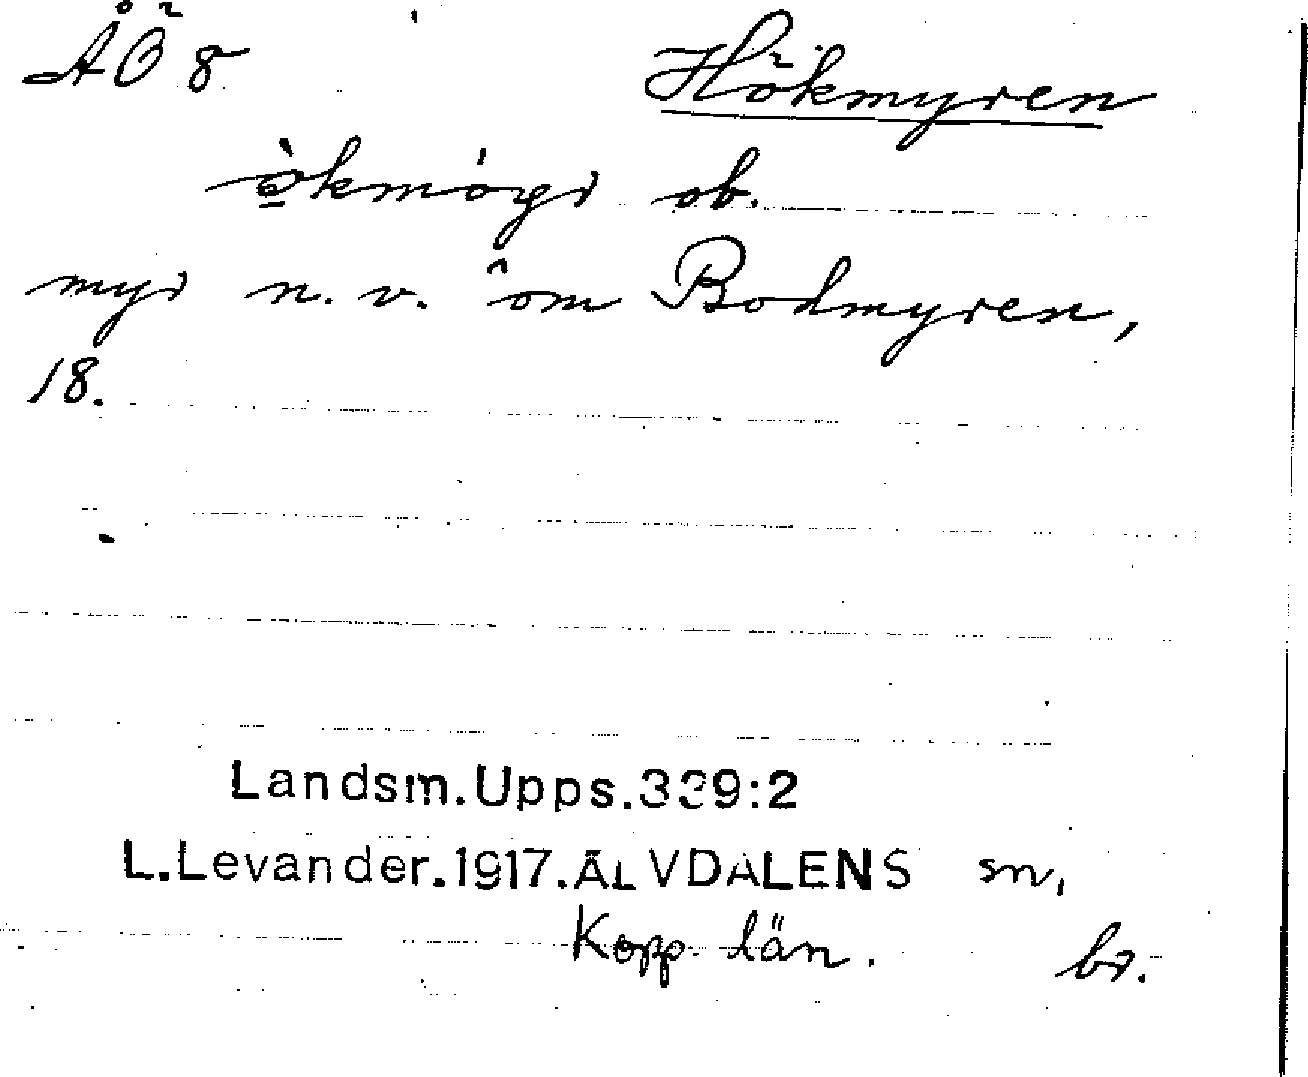 ÅÖ 8 Hökmyren
ò̱kmóyr ob.
myr n. v. om Bodmyren,
18.
Landsm.Upps.339:2
L.Levander.1917.ÄLVDALENS sn,
Kopp. län. br.